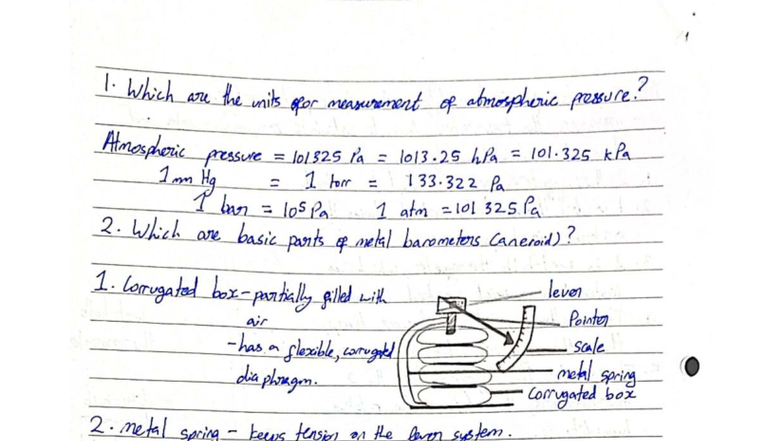 1. Which are the units for measurement of atmospheric pressure?
Atmospheric pressure = 101325 Pa = 1013.25 hPa = 101.325 kPa
1 mm Hg = 1 torr = 133.322 Pa
1 bar = 10⁵ Pa 1 atm = 101 325 Pa
2. Which are basic parts of metal barometers (aneroid)?
1. Corrugated box - partially filled with
air
- has a flexible, corrugated
diaphragm.
lever
Pointer
scale
metal spring
corrugated box
2. metal spring - keeps tension on the lever system.